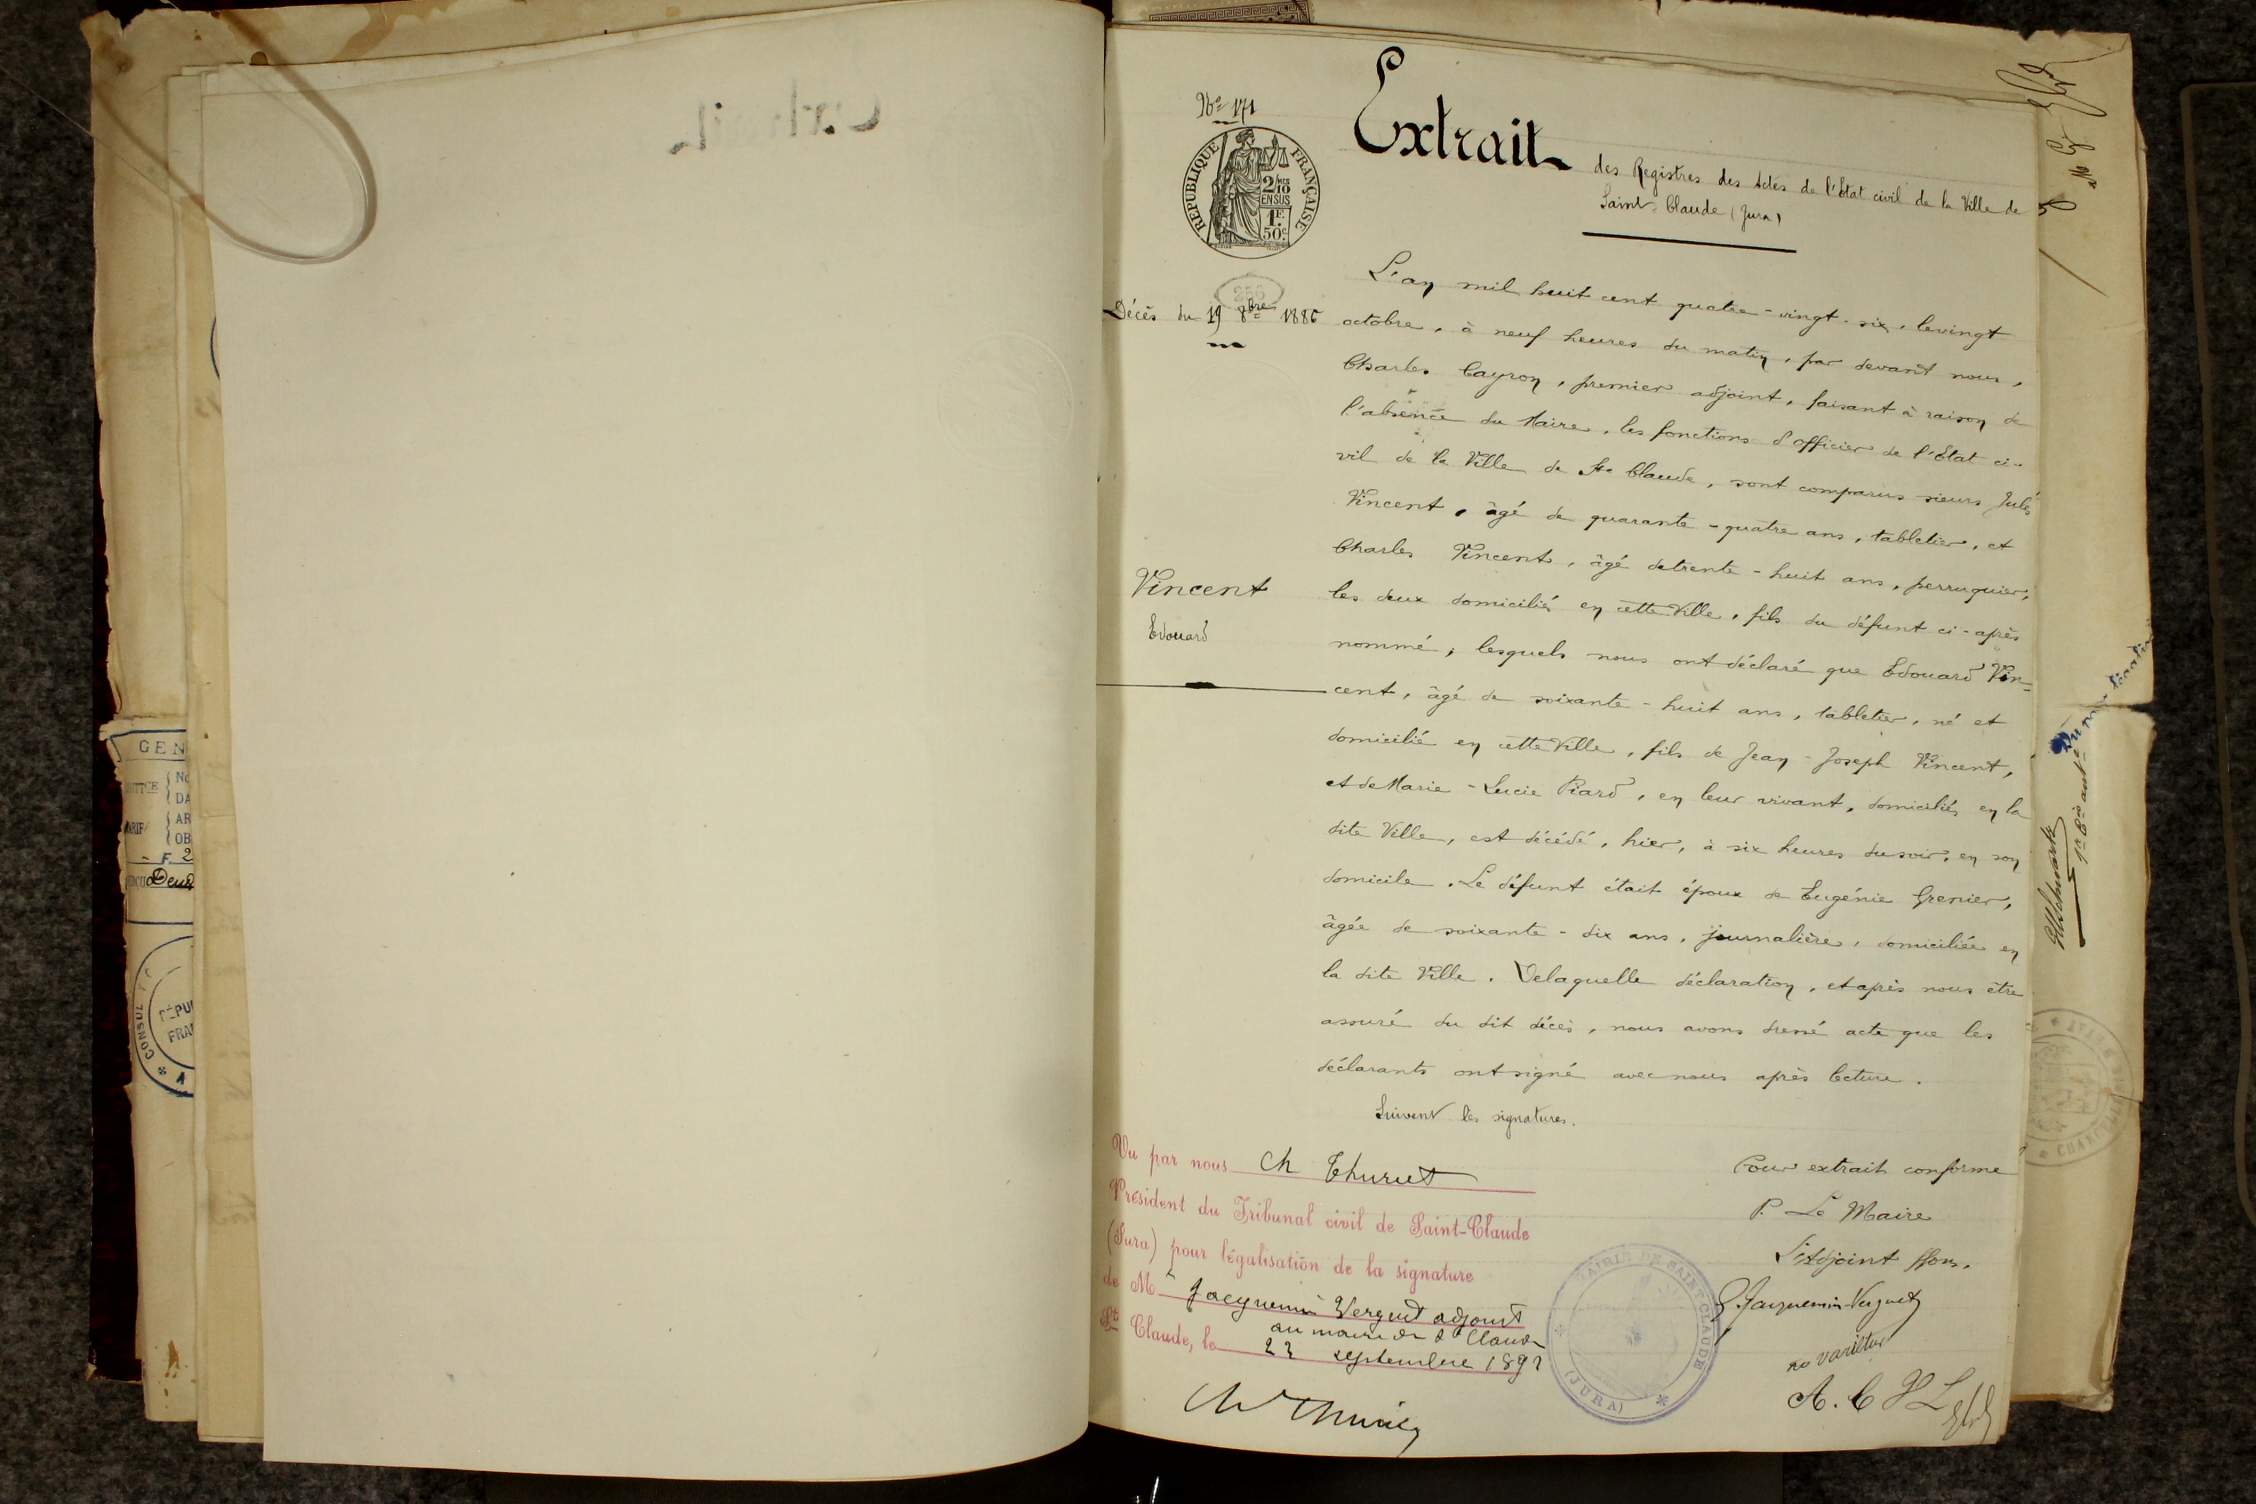 Extrait
No 171
Extrait
des Registres des Actes de l'Etat civil de la Ville de
Saint-Claude (Jura)
REPUBLIQUE FRANÇAISE
2/10MES
EN SUS
1F.
50c.
256
Décès du 19 8bre 1886
L'an mil huit cent quatre-vingt-six, le vingt
octobre, à neuf heures du matin, par devant nous,
Charles Cayron, premier adjoint, faisant à raison de
l'absence du Maire, les fonctions d'officier de l'Etat ci-
vil de la Ville de St Claude, sont comparus sieurs Jules
Vincent, âgé de quarante-quatre ans, tabletier, et
Charles Vincent, âgé de trente-huit ans, perruquier,
les deux domiciliés en cette Ville, fils du défunt ci-après
nommé, lesquels nous ont déclaré que Edouard Vin-
cent, âgé de soixante-huit ans, tabletier, né et
domicilié en cette Ville, fils de Jean-Joseph Vincent,
et de Marie-Lucie Piard, en leur vivant, domiciliés en la
dite Ville, est décédé, hier, à six heures du soir, en son
domicile. Le défunt était époux de Eugénie Grenier,
âgée de soixante-dix ans, journalière, domiciliée en
la dite Ville. De laquelle déclaration, et après nous être
assuré du dit décès, nous avons dressé acte que les
déclarants ont signé avec nous après lecture.
Suivent les signatures.
Vincent
Edouard
Vu par nous Ch Thuriet
Président du Tribunal civil de Saint-Claude
(Jura) pour légalisation de la signature
de M Jacquemin Verguet adjoint
au maire de St Claude
St Claude, le 22 septembre 1892
Pour extrait conforme
P. Le Maire
L'Adjoint ffons.
Jacquemin-Verguet
MAIRIE DE SAINT-CLAUDE
(JURA)
ne varietur
A. C
GEN
F. 2
Deux
CONSUL
RÉPU
FRA